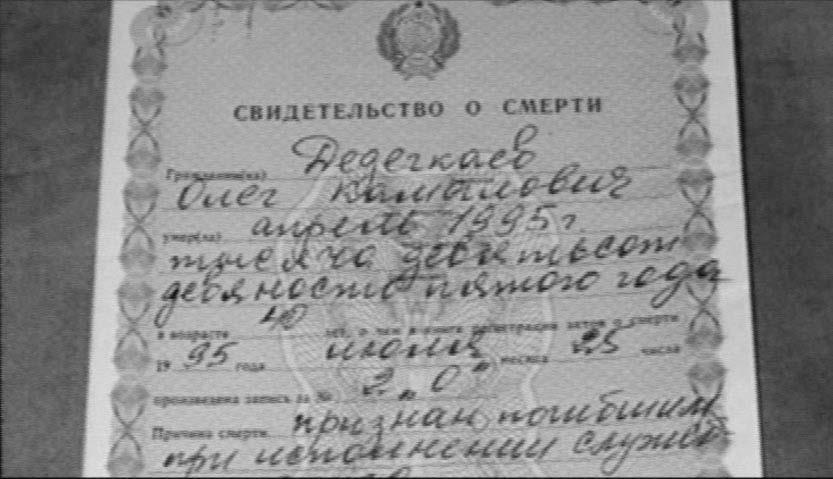 СВИДЕТЕЛЬСТВО О СМЕРТИ
Гражданин(ка) Дедегкаев
Олег Камилович
умер(ла) апрель 1995 г.
тысяча девятьсот
девяносто пятого года
в возрасте 40 лет, о чем в книге регистрации актов о смерти
19 95 года июля месяца 25 числа
произведена запись за №
Причина смерти признан погибшим
при исполнении служеб-